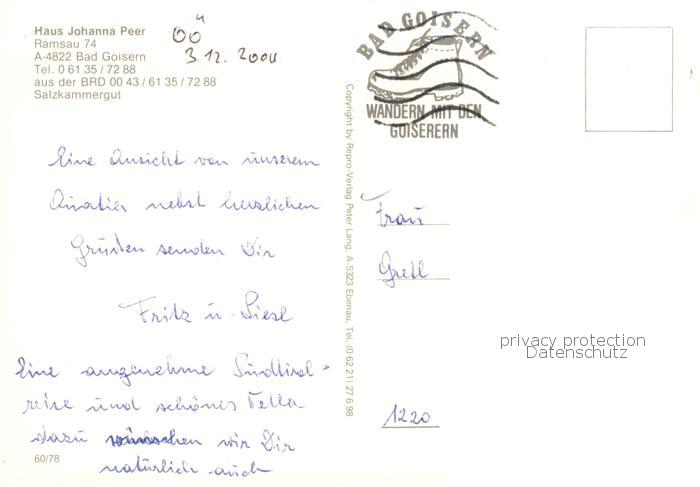 Haus Johanna Peer
Ramsau 74
A-4822 Bad Goisern
Tel. 0 61 35 / 72 88
aus der BRD 00 43 / 61 35 / 72 88
Salzkammergut
OÖ
3.12.2004
BAD GOISERN
WANDERN MIT DEN
GOISERERN
Copyright by Repro-Verlag Peter Lang, A-5323 Ebenau, Tel. (0 62 21) 27 6 98
Eine Ansicht von unserem
Quatier nebst herzlichen
Grüßen senden Dir
Fritz u. Liesl
Eine angenehme Südtirol-
reise und schönes
dazu wünschen wir Dir
natürlich auch
60/78
Frau
Gretl
1220
privacy protection
Datenschutz